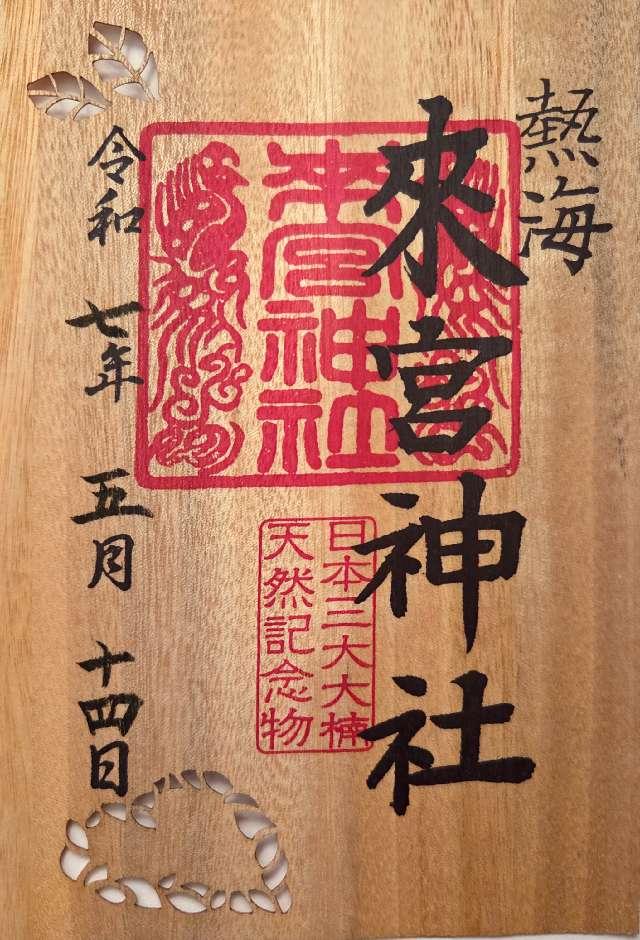 熱海
來宮神社
來宮神社
日本三大大楠
天然記念物
令和七年五月十四日